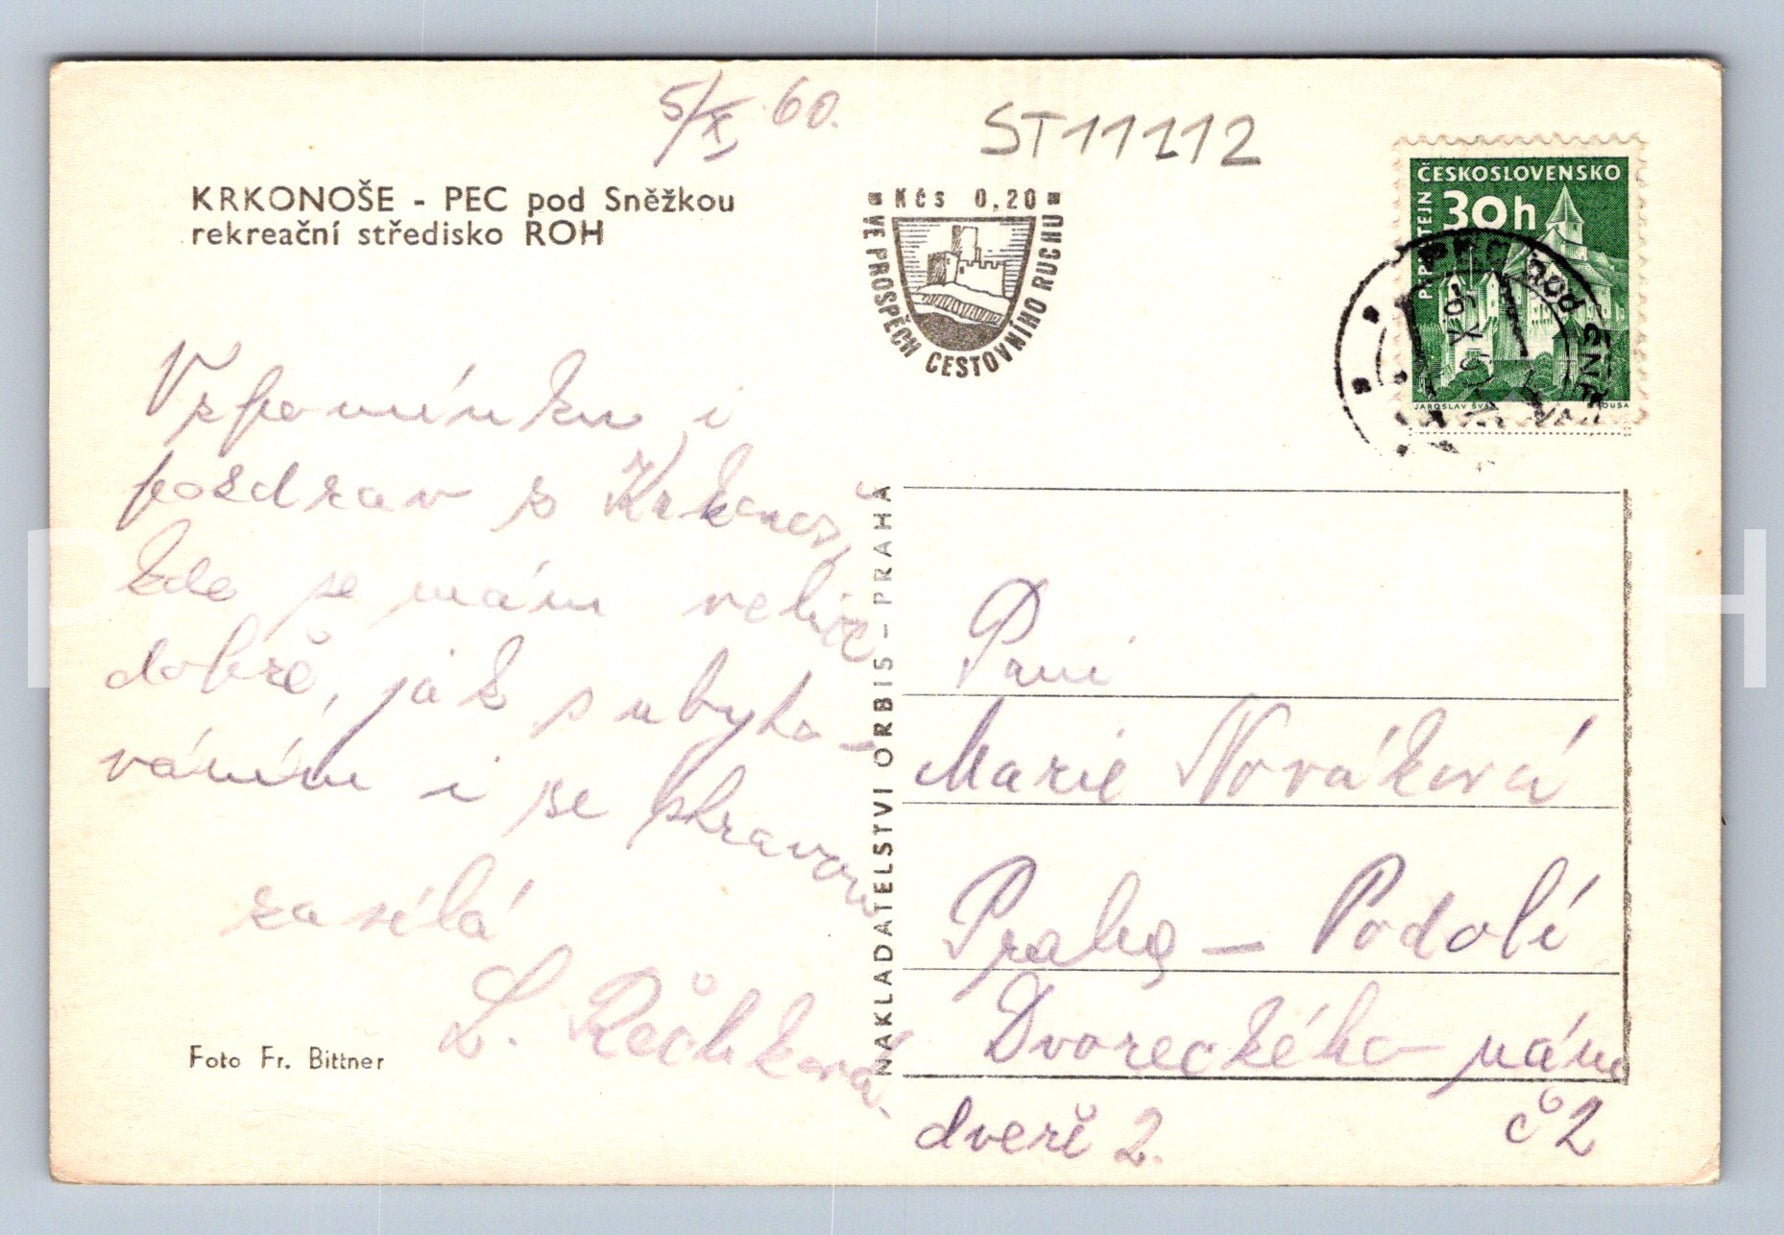 5/X 60.
ST11112
KRKONOŠE - PEC pod Sněžkou
rekreační středisko ROH
Kčs 0,20
VE PROSPĚCH CESTOVNÍHO RUCHU
ČESKOSLOVENSKO
30h
PERNŠTEJN
JAROSLAV
PEC POD SNĚ
Vzpomínku i
pozdrav z Krkonoš,
kde se mám velice
dobře, jak s ubyto-
váním i se stravou
zasílá
L. Rečková.
Foto Fr. Bittner
NAKLADATELSTVÍ ORBIS - PRAHA
Paní
Marie Nováková
Praha - Podolí
Dvoreckého nám
č 2
dveře 2.